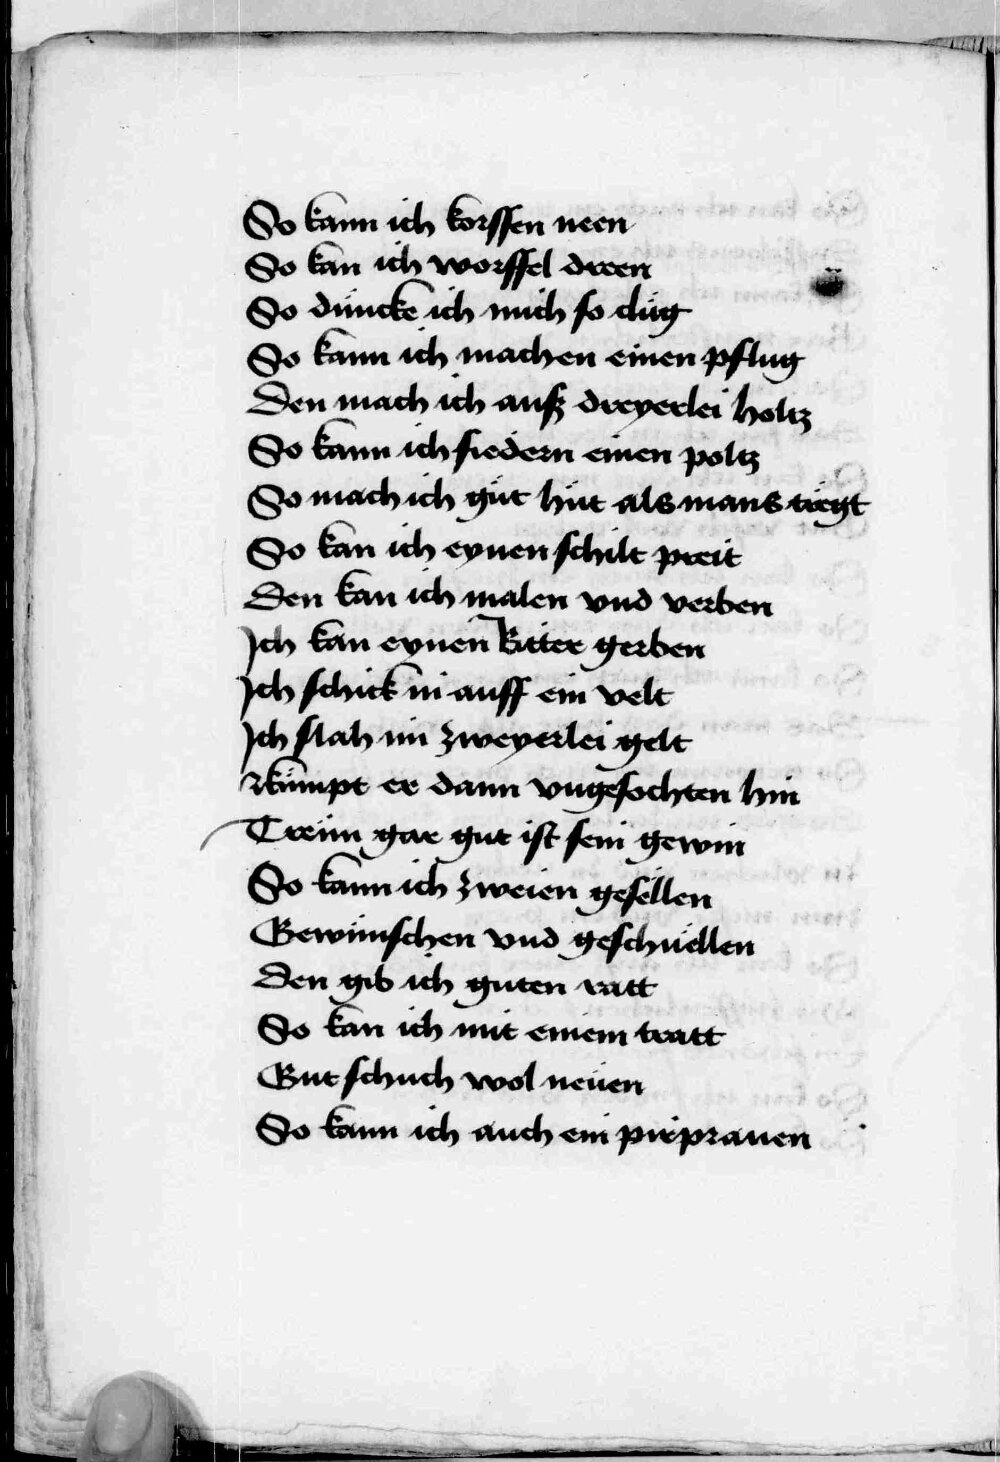 So kann ich korssen neen
So kan ich worffel dreen
So düncke ich mich so clüg
So kann ich machen einen pflug
Den mach ich auß dreyerlei holtz
So kann ich fiedern einen poltz
So mach ich güt hüt als mans tregt
So kan ich eynen schilt preit
Den kan ich malen vnd verben
Ich kan eynen Ritter gerben
Ich schick in auff ein velt
Ich slah im zweyerlei gelt
Kümpt er dann vngefochten hin
Treün gar gut ist sein gewin
So kann ich zweien gesellen
Gewünschen vnd geschnellen
Den gib ich guten ratt
So kan ich mit einem tratt
Gut schuch wol neüen
So kann ich auch ein pir prauen